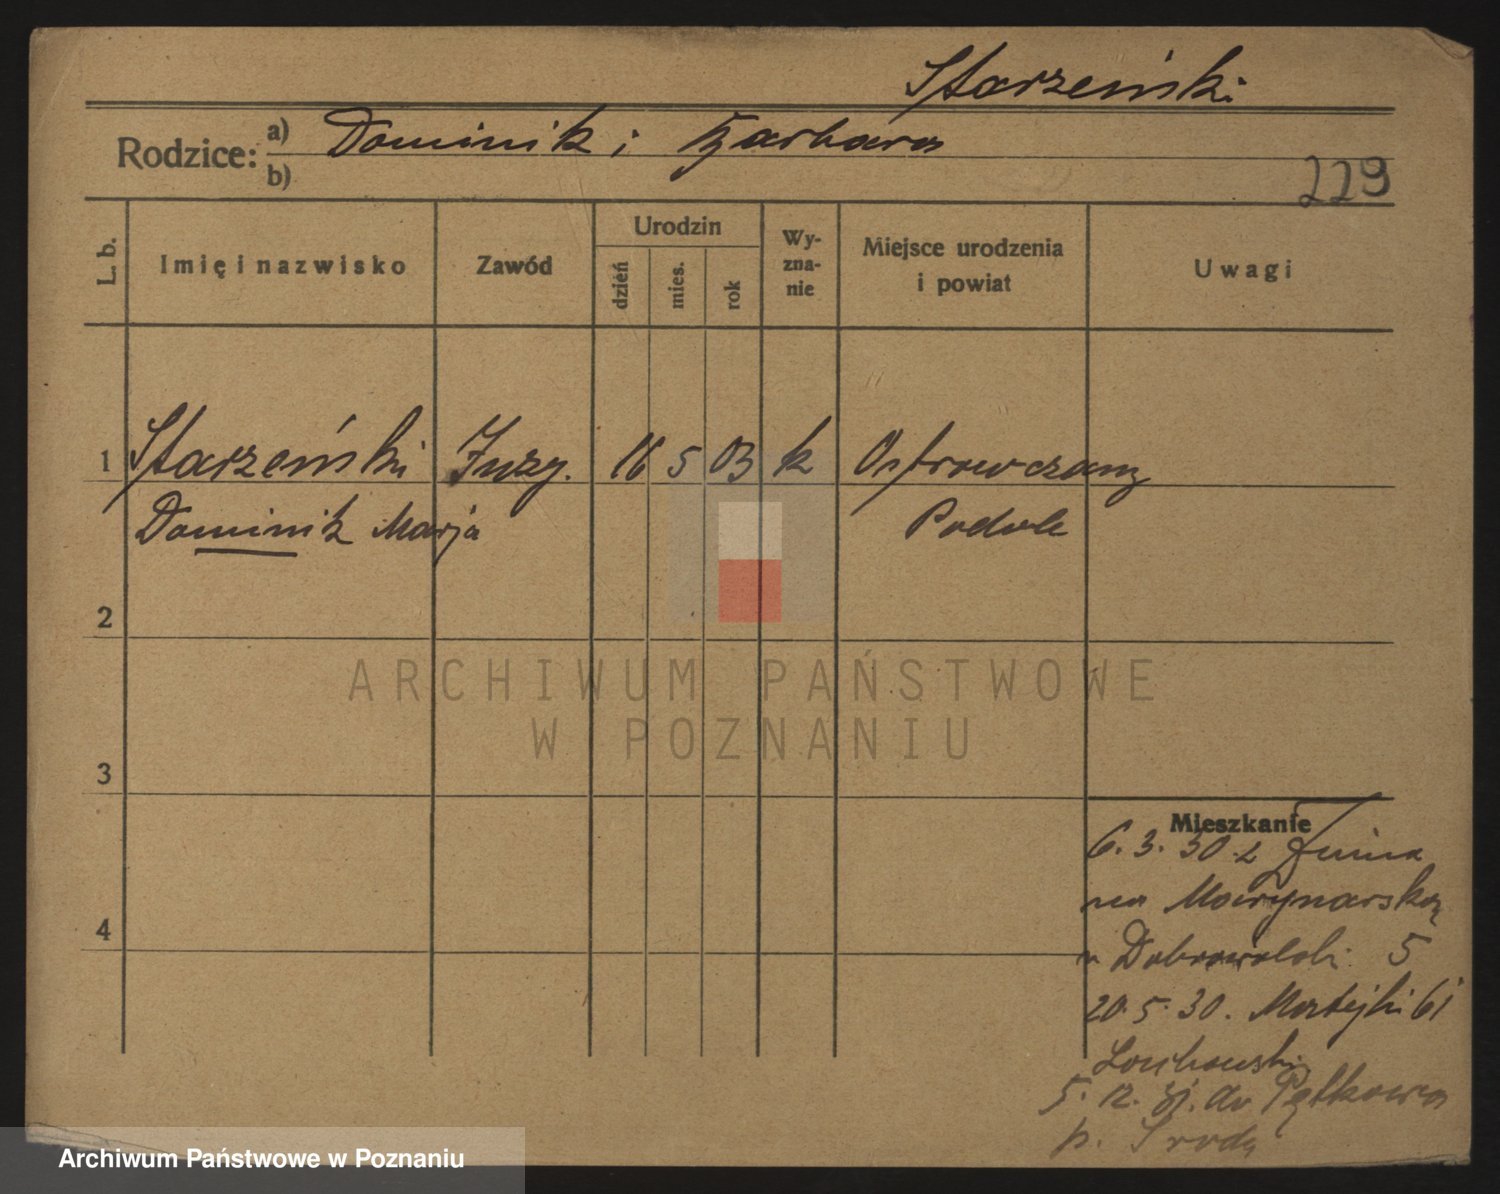 Starzeński
Rodzice:
a) Dominik i Barbara
b)
229
L. b.
Imię i nazwisko
Zawód
Urodzin
dzień
mies.
rok
Wy-
zna-
nie
Miejsce urodzenia
i powiat
Uwagi
1 Starzeński Inży. 16 5 03 k Ostrowczany
Dominik Marja Podole
2
ARCHIWUM PAŃSTWOWE
W POZNANIU
3
Mieszkanie
6. 3. 30 z Żnina
na Marynarską
u Dobrowolski 5
20. 5. 30. Matejki 61
5. 12. 31. do Pętkowa
p. Środa
4
Archiwum Państwowe w Poznaniu